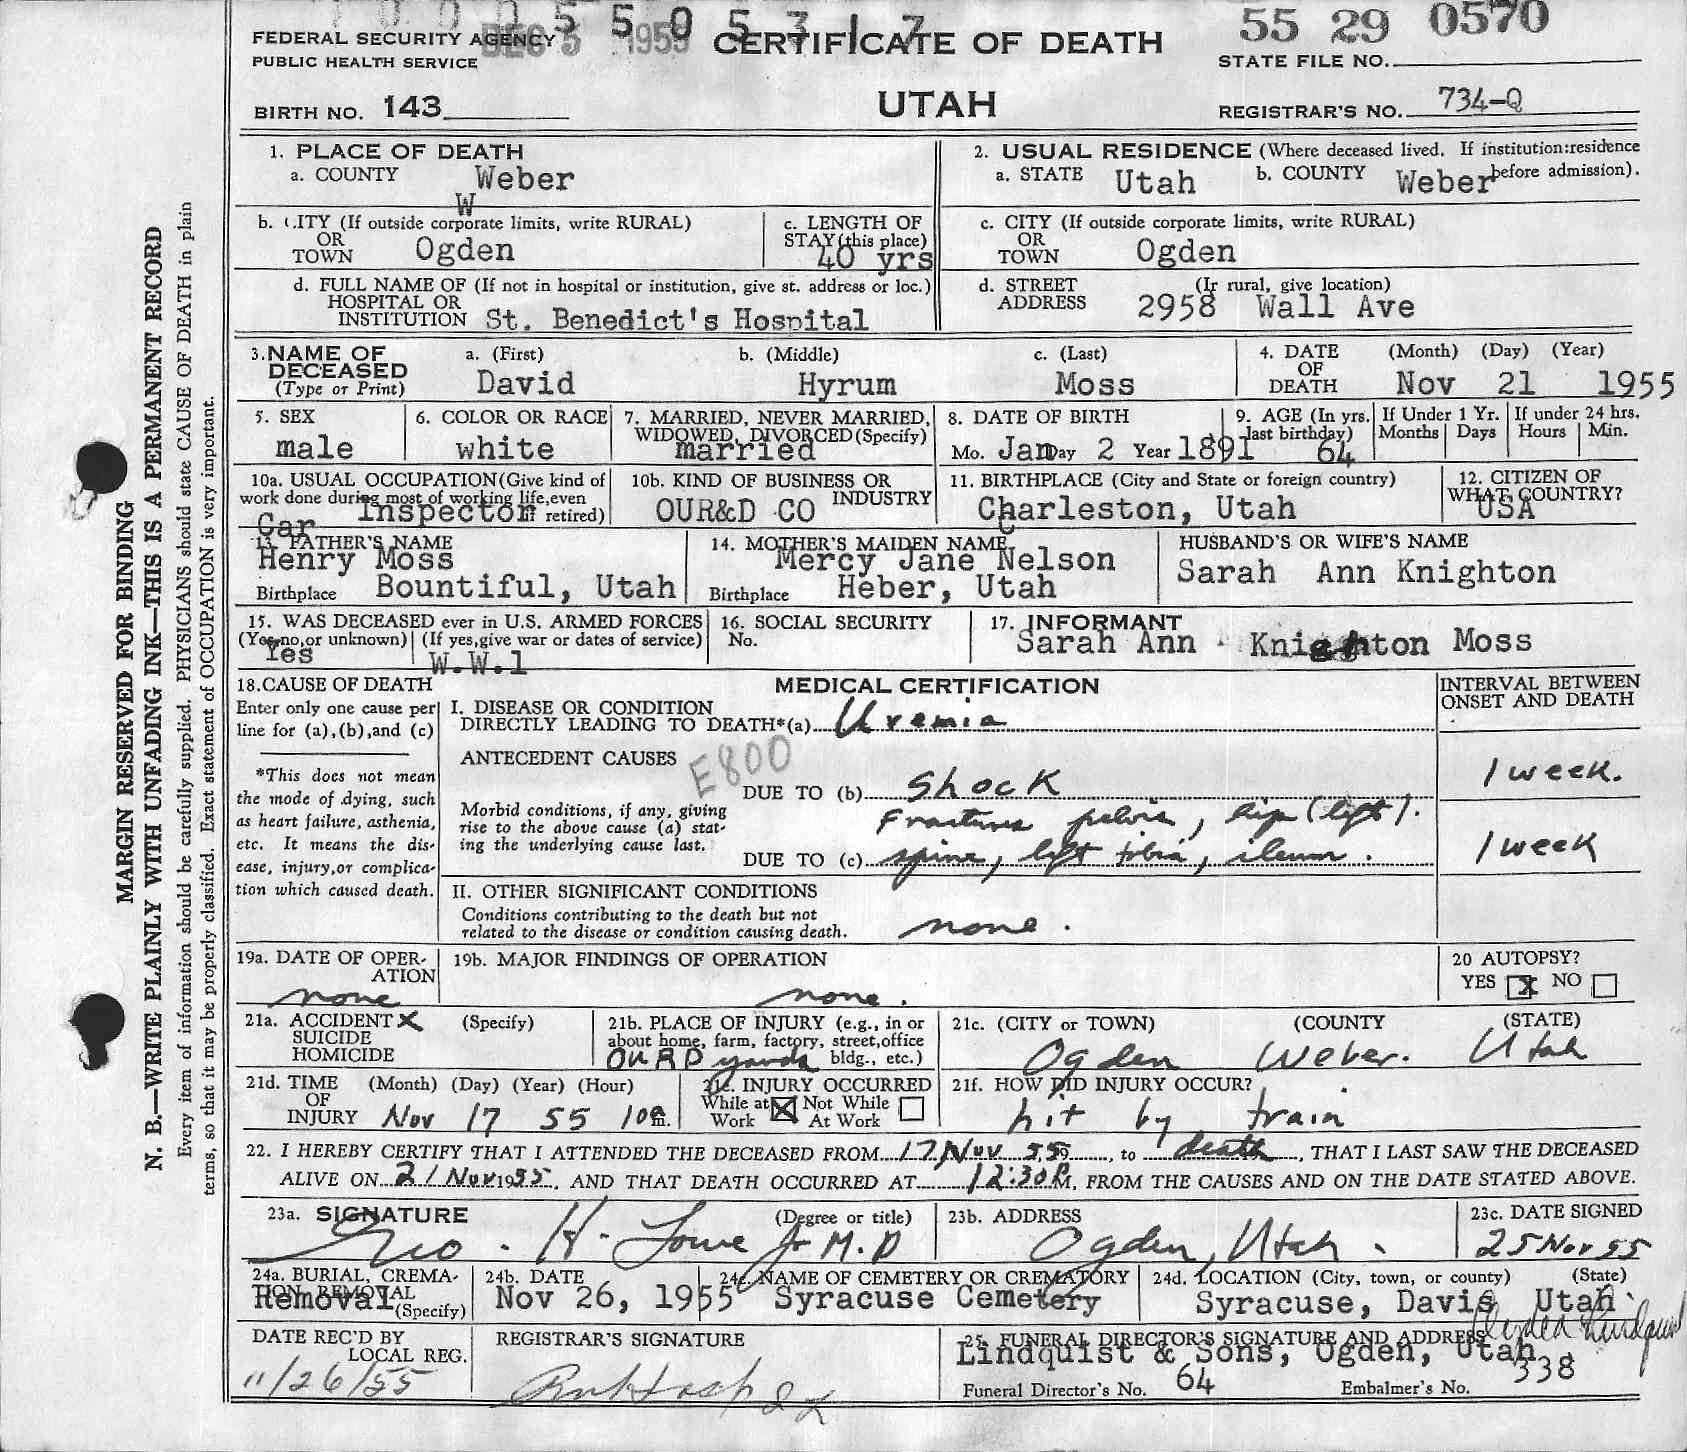 1 0 0 0 5 5 0 5 3 1 7
55 29 0570
FEDERAL SECURITY AGENCY DEC 5 1955 CERTIFICATE OF DEATH
PUBLIC HEALTH SERVICE STATE FILE NO.
BIRTH NO. 143 UTAH REGISTRAR'S NO. 734-Q
MARGIN RESERVED FOR BINDING
N. B.—WRITE PLAINLY WITH UNFADING INK—THIS IS A PERMANENT RECORD
Every item of information should be carefully supplied. PHYSICIANS should state CAUSE OF DEATH in plain
terms, so that it may be properly classified. Exact statement of OCCUPATION is very important.
1. PLACE OF DEATH
a. COUNTY Weber
W
2. USUAL RESIDENCE (Where deceased lived. If institution:residence
before admission).
a. STATE Utah b. COUNTY Weber
b. CITY (If outside corporate limits, write RURAL)
OR
TOWN Ogden
c. LENGTH OF
STAY (this place)
40 yrs
c. CITY (If outside corporate limits, write RURAL)
OR
TOWN Ogden
d. FULL NAME OF (If not in hospital or institution, give st. address or loc.)
HOSPITAL OR
INSTITUTION St. Benedict's Hospital
d. STREET (If rural, give location)
ADDRESS 2958 Wall Ave
3. NAME OF a. (First) b. (Middle) c. (Last)
DECEASED
(Type or Print) David Hyrum Moss
4. DATE (Month) (Day) (Year)
OF
DEATH Nov 21 1955
5. SEX
male
6. COLOR OR RACE
white
7. MARRIED, NEVER MARRIED,
WIDOWED, DIVORCED (Specify)
married
8. DATE OF BIRTH
Mo. Jan Day 2 Year 1891
9. AGE (In yrs.
last birthday)
64
If Under 1 Yr.
Months Days
If under 24 hrs.
Hours Min.
10a. USUAL OCCUPATION (Give kind of
work done during most of working life, even
if retired)
Car Inspector
10b. KIND OF BUSINESS OR
INDUSTRY
OUR&D CO
11. BIRTHPLACE (City and State or foreign country)
Charleston, Utah
12. CITIZEN OF
WHAT COUNTRY?
USA
13. FATHER'S NAME
Henry Moss
Birthplace Bountiful, Utah
14. MOTHER'S MAIDEN NAME
Mercy Jane Nelson
Birthplace Heber, Utah
HUSBAND'S OR WIFE'S NAME
Sarah Ann Knighton
15. WAS DECEASED ever in U.S. ARMED FORCES
(Yes,no,or unknown) (If yes,give war or dates of service)
Yes W.W.1
16. SOCIAL SECURITY
No.
17. INFORMANT
Sarah Ann Knighton Moss
18. CAUSE OF DEATH
Enter only one cause per
line for (a),(b),and (c)
*This does not mean
the mode of dying, such
as heart failure, asthenia,
etc. It means the dis-
ease, injury,or complica-
tion which caused death.
MEDICAL CERTIFICATION
INTERVAL BETWEEN
ONSET AND DEATH
I. DISEASE OR CONDITION
DIRECTLY LEADING TO DEATH*(a) Uremia
ANTECEDENT CAUSES E800
DUE TO (b) Shock 1 week.
Morbid conditions, if any, giving
rise to the above cause (a) stat-
ing the underlying cause last.
Fractures pelvis, hip (left).
DUE TO (c) spine, left tibia, ileum. 1 week
II. OTHER SIGNIFICANT CONDITIONS
Conditions contributing to the death but not
related to the disease or condition causing death.
none.
19a. DATE OF OPER-
ATION
none
19b. MAJOR FINDINGS OF OPERATION
none.
20 AUTOPSY?
YES X NO
21a. ACCIDENT X (Specify)
SUICIDE
HOMICIDE
21b. PLACE OF INJURY (e.g., in or
about home, farm, factory, street,office
bldg., etc.)
OURD yards
21c. (CITY or TOWN) (COUNTY (STATE)
Ogden Weber. Utah
21d. TIME (Month) (Day) (Year) (Hour)
OF
INJURY Nov 17 55 10a m.
21e. INJURY OCCURRED
While at Work X Not While At Work
21f. HOW DID INJURY OCCUR?
hit by train
22. I HEREBY CERTIFY THAT I ATTENDED THE DECEASED FROM 17 Nov 55, to death, THAT I LAST SAW THE DECEASED
ALIVE ON 21 Nov 1955, AND THAT DEATH OCCURRED AT 12:30 P M, FROM THE CAUSES AND ON THE DATE STATED ABOVE.
23a. SIGNATURE (Degree or title)
Geo. H. Lowe Jr M.D
23b. ADDRESS
Ogden, Utah.
23c. DATE SIGNED
25 Nov 55
24a. BURIAL, CREMA-
TION, REMOVAL
(Specify)
Removal
24b. DATE
Nov 26, 1955
24c. NAME OF CEMETERY OR CREMATORY
Syracuse Cemetery
24d. LOCATION (City, town, or county) (State)
Syracuse, Davis Utah
DATE REC'D BY
LOCAL REG.
11/26/55
REGISTRAR'S SIGNATURE
25. FUNERAL DIRECTOR'S SIGNATURE AND ADDRESS
Lindquist & Sons, Ogden, Utah
Funeral Director's No. 64 Embalmer's No. 338